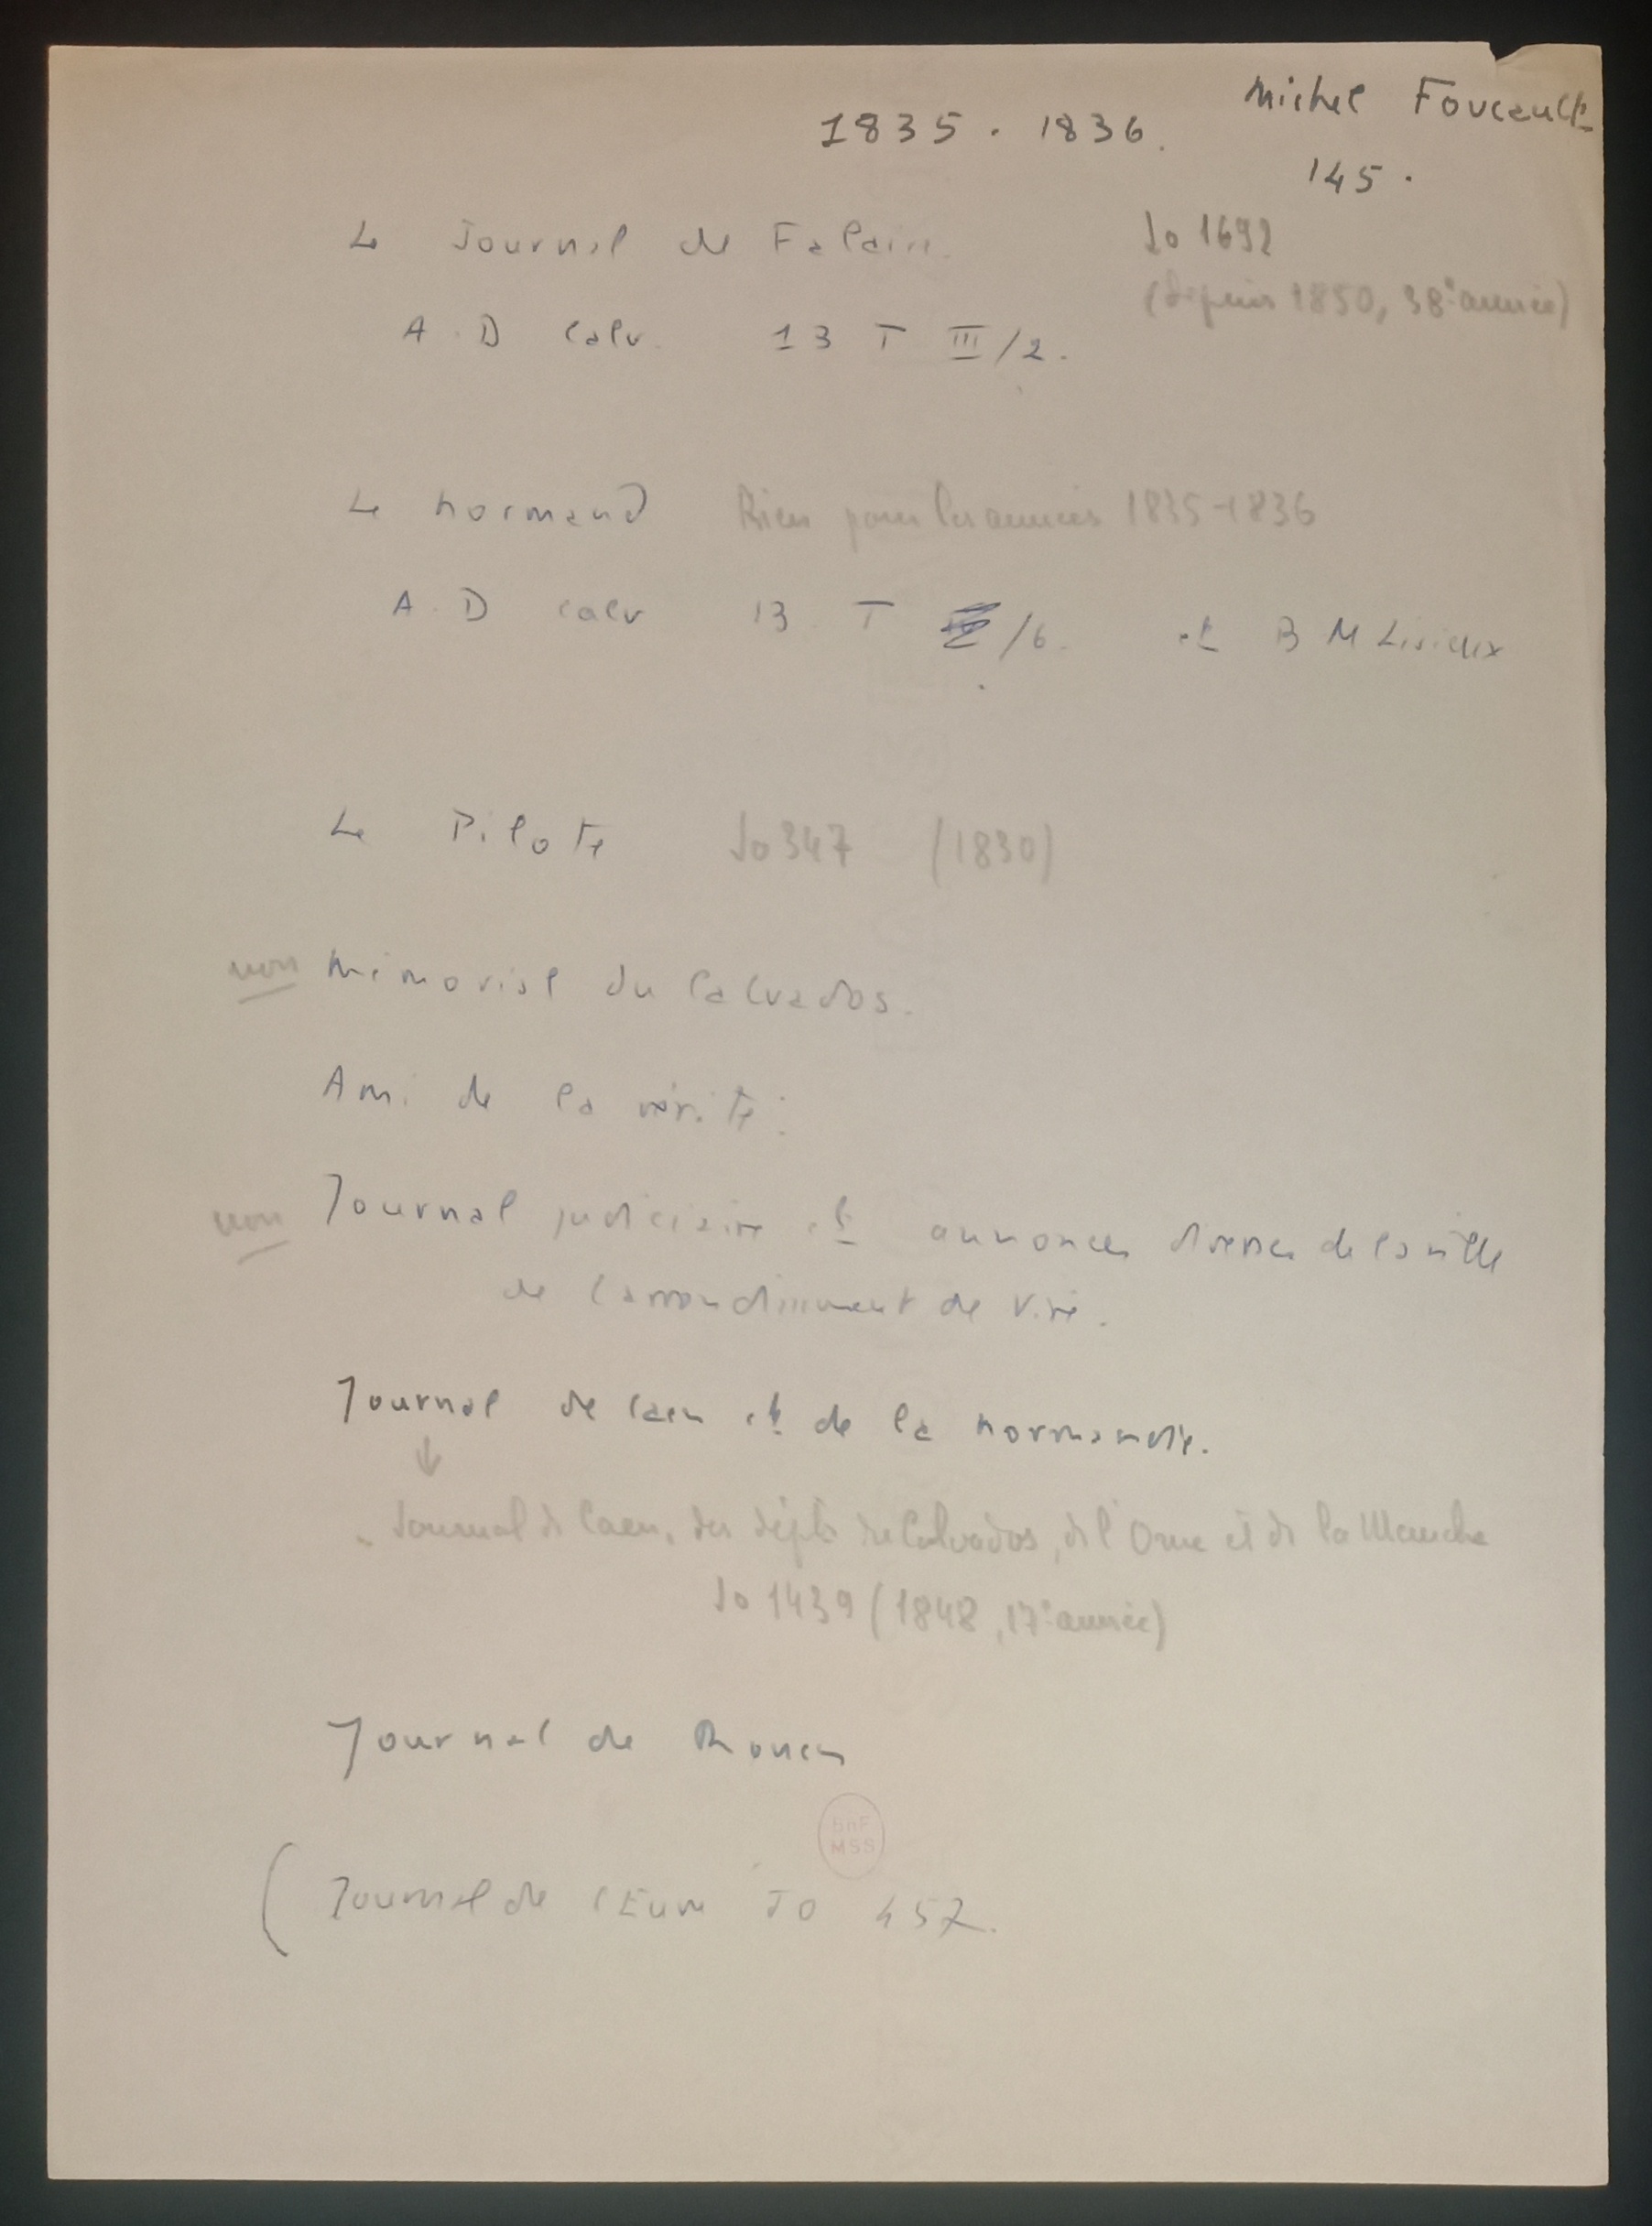 Michel Foucault
1835 . 1836.
145.
Le Journal de Falaise. Jo 1692
(depuis 1850, 38e année)
A.D Calv. 13 T III/2.
Le Normand Rien pour les années 1835-1836
A.D Calv 13 T /6. et B M Lisieux
Le Pilote Jo 347 (1830)
non Mémorial du Calvados.
Ami de la vérité.
non Journal judiciaire et annonces diverses de la ville
de l'arrondissement de Vire.
Journal de Caen et de la Normandie.
↓
Journal de Caen, des dépts du Calvados, de l'Orne et de la Manche
Jo 1439 (1848, 17e année)
Journal de Rouen
BnF
MSS
( Journal de l'Eure JO 457.